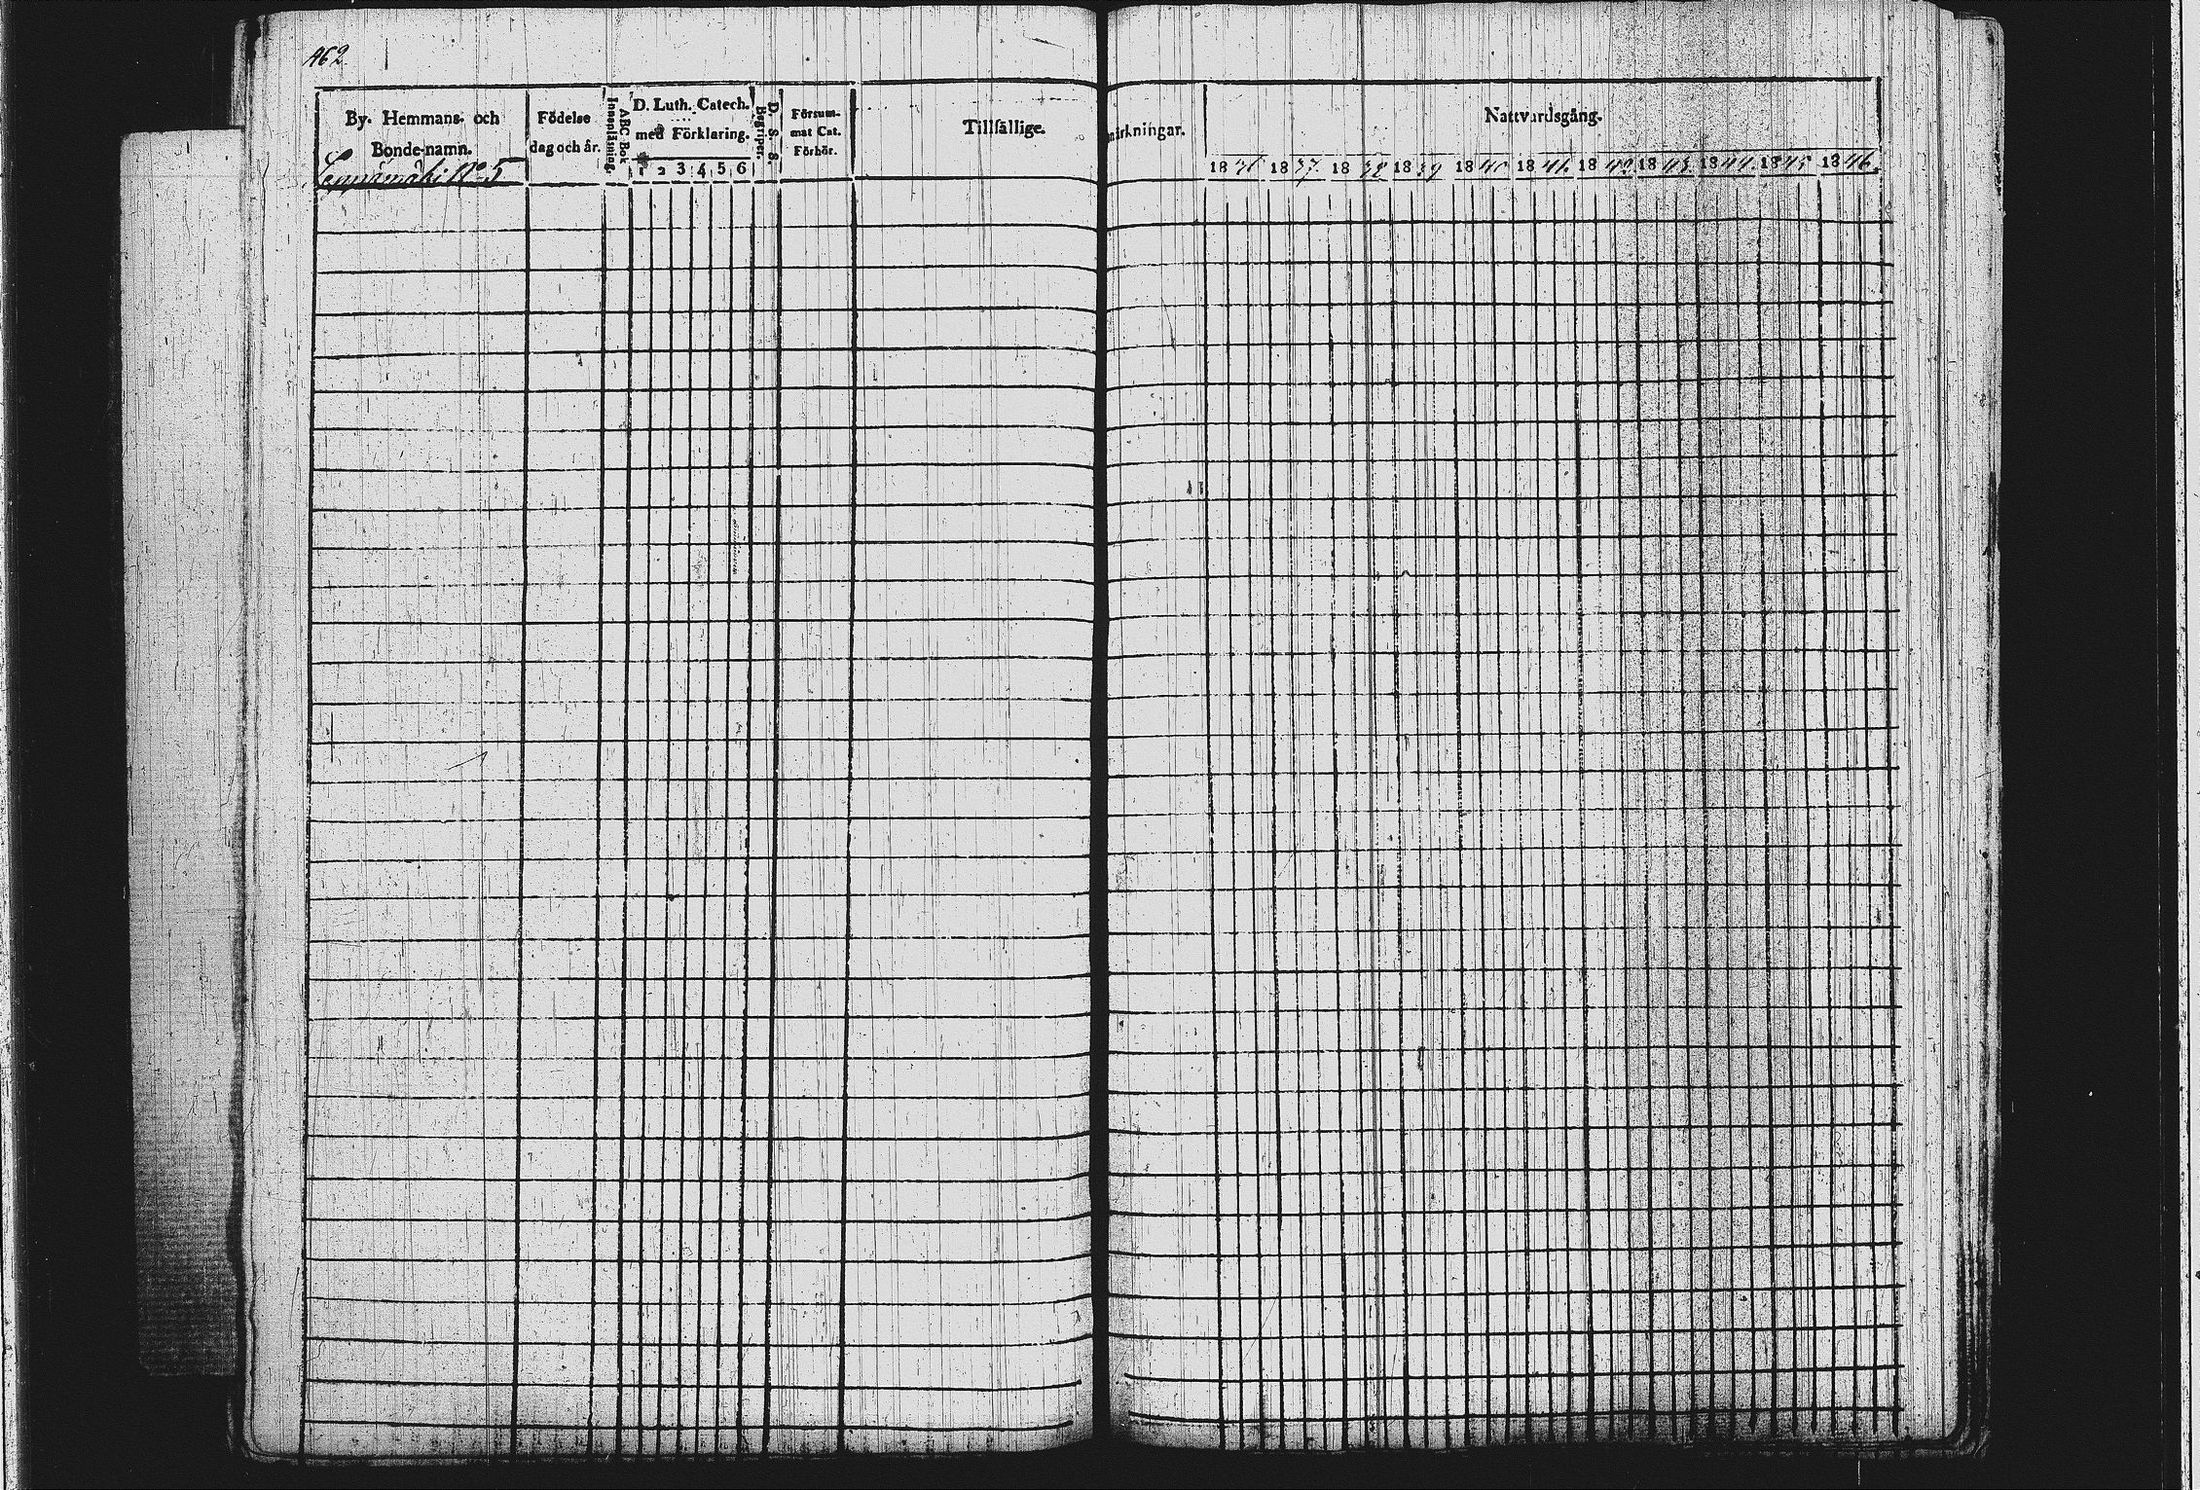 462
By. Hemmans- och
Bonde-namn.
No 5
Födelse
dag och år.
ABC-Bok
Innanläsning.
D. Luth. Catech.
med Förklaring.
1 2 3 4 5 6
D. S. S.
Begriper.
Försum-
mat Cat.
Förhör.
Tillfällige
märkningar.
Nattvardsgång.
1836 1837. 1838 1839 1840 1841. 1842. 1843. 1844. 1845. 1846.